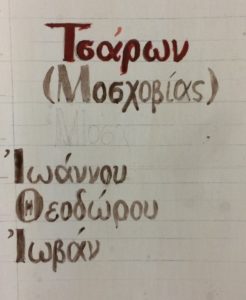 Τσάρων
(Μοσχοβίας)
Ἰωάννου
Θεοδώρου
Ἰωβάν